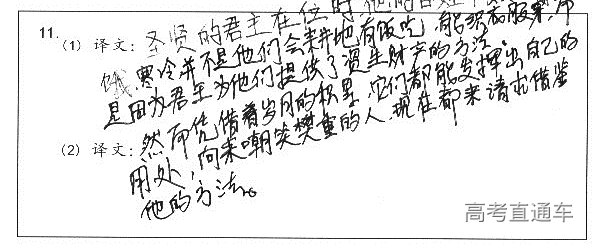 11.
(1) 译文：圣贤的君主在位时，他的百姓不
饿、寒冷，并不是他们会耕地有饭吃，能织衣服来
是因为君主为他们提供了资生财产的方法
(2) 译文：然而凭借着岁月的积累，它们都能发挥出自己的
用处，向来嘲笑樊重的人，现在都来请求借鉴
他的方法。
高考直通车